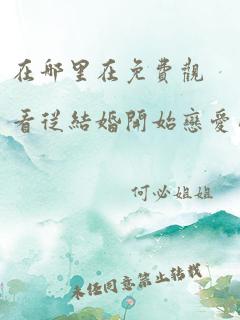 在哪里在免費觀
看從結婚開始戀愛
何必姐姐
未经同意禁止转载